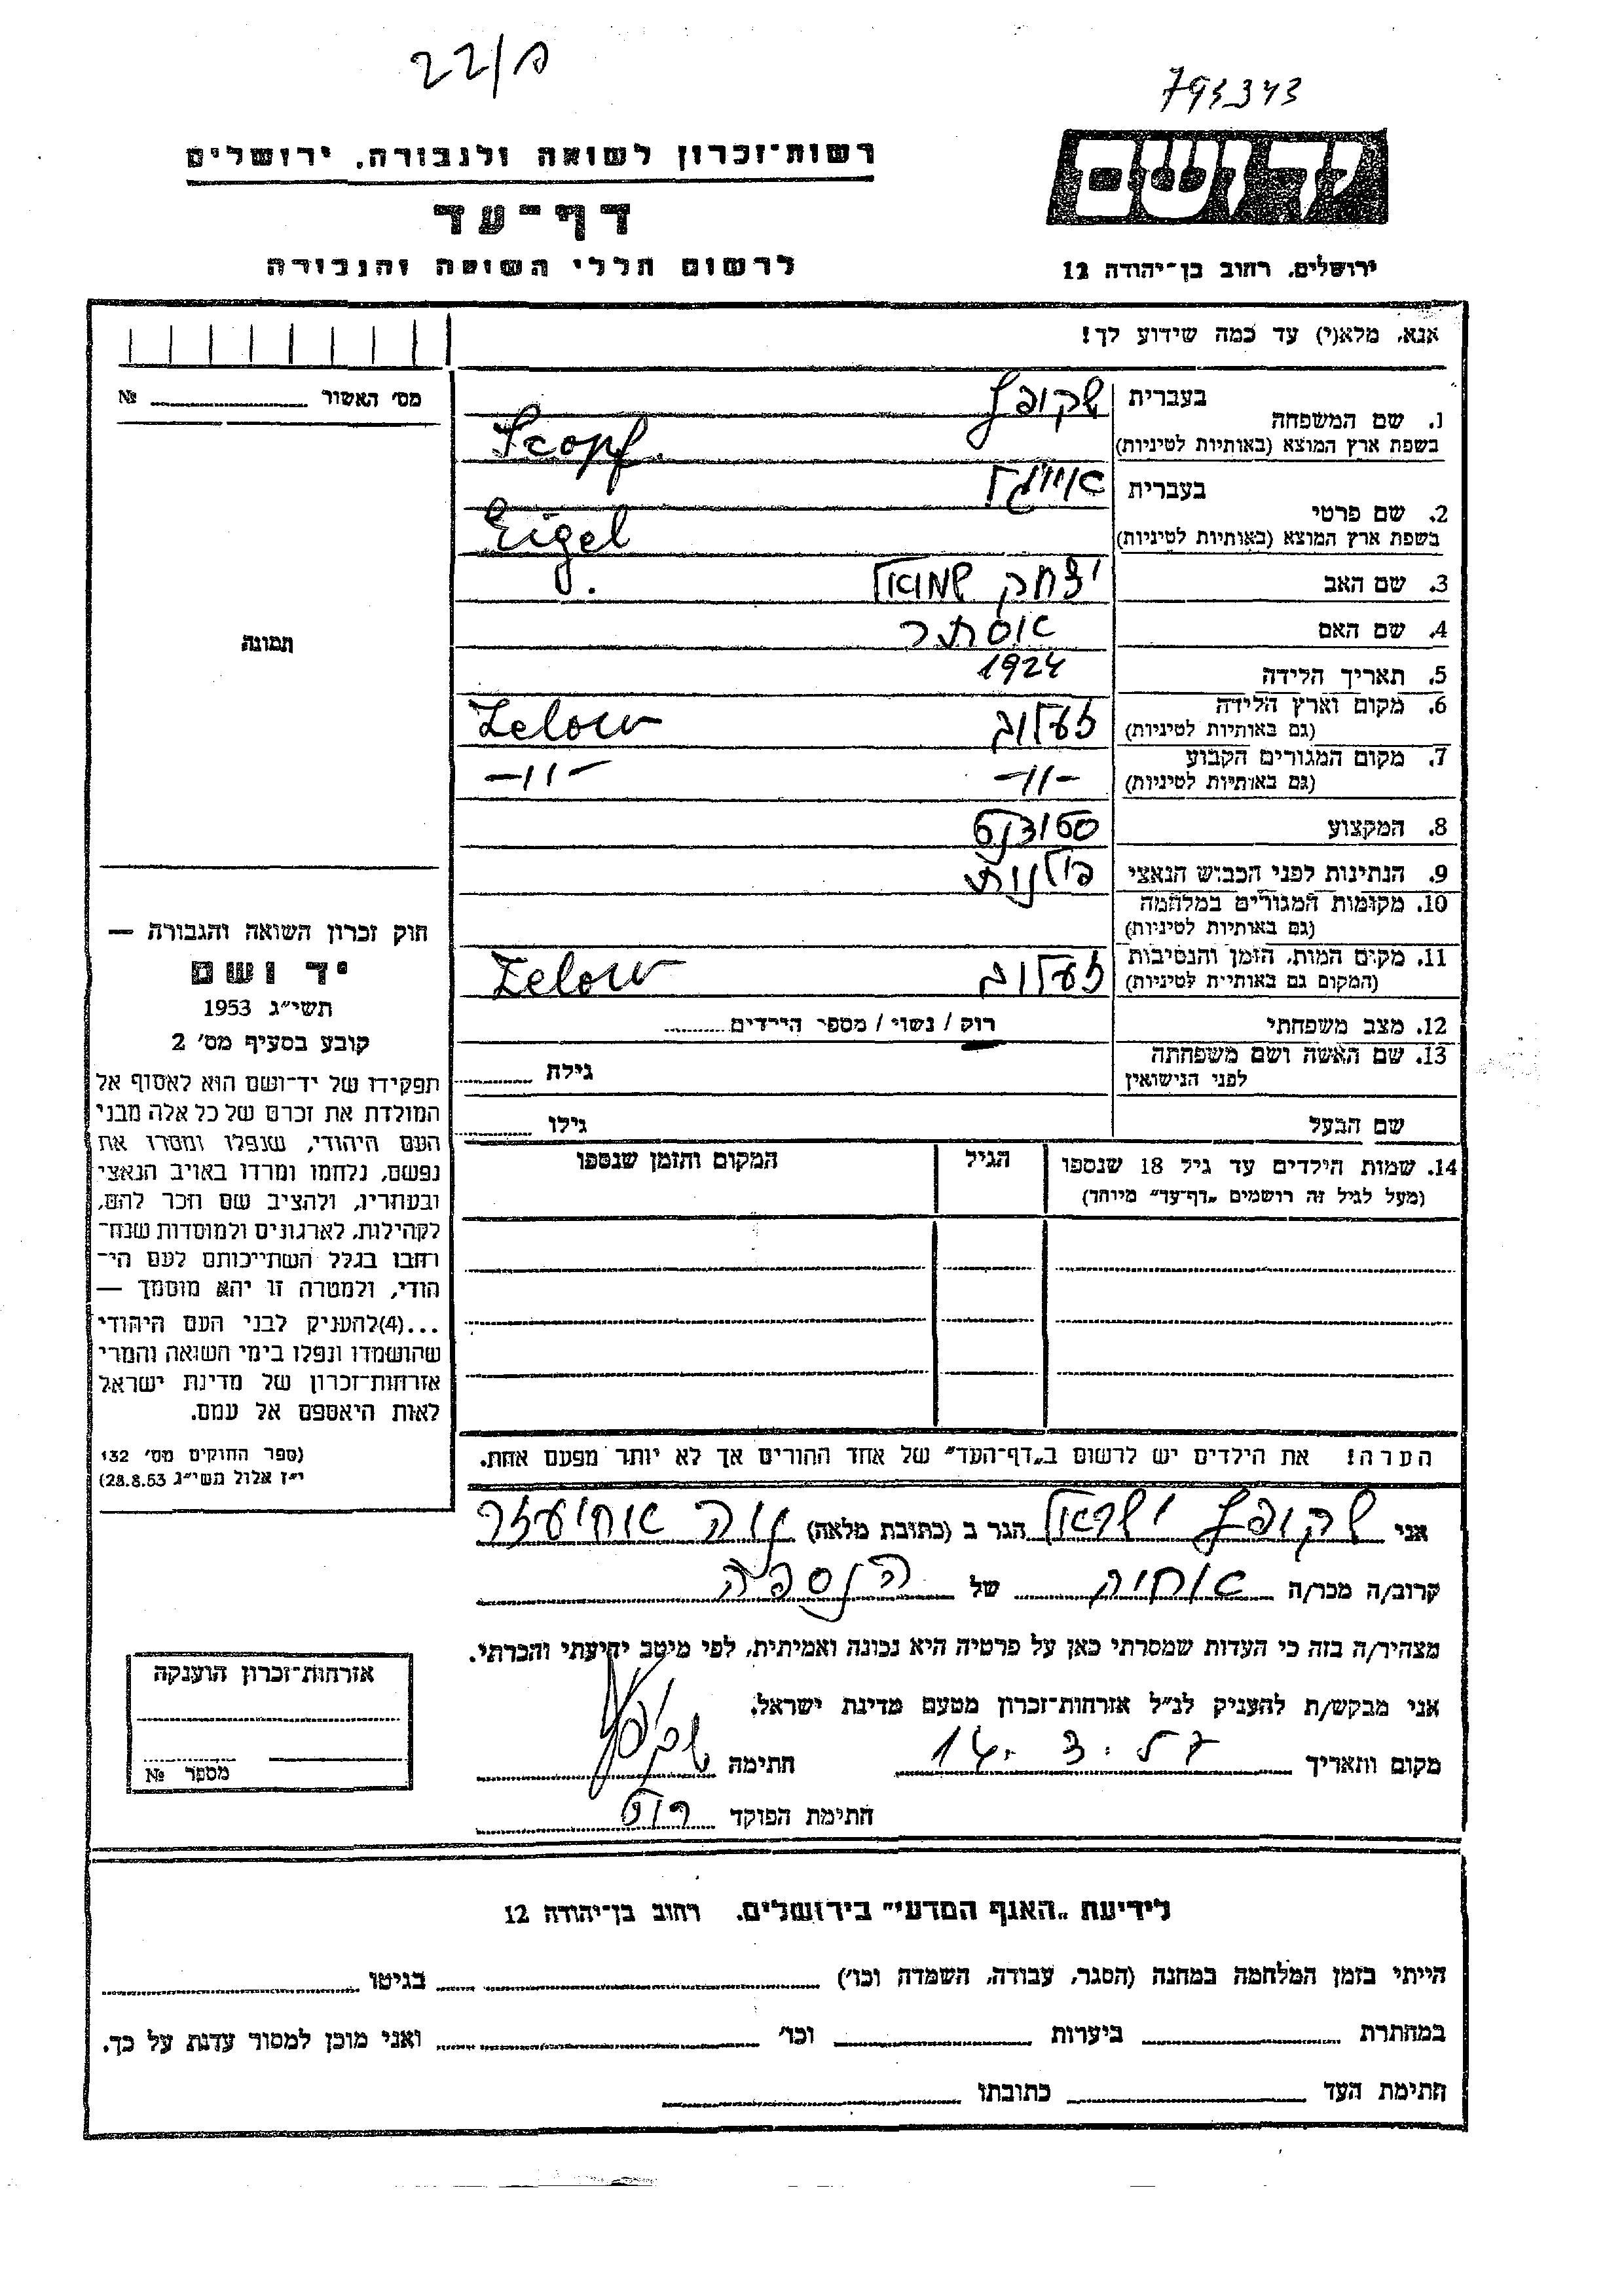 22/ פ
793343
רשות־זכרון לשואה ולגבורה, ירושלים
דף־עד
לרשום חללי השואה והגבורה
ידושם
ירושלים, רחוב בן־יהודה 12
אנא, מלא(י) עד כמה שידוע לך!
מס׳ האשור № 
1. שם המשפחה
בעברית שקופף
בשפת ארץ המוצא (באותיות לטיניות) Scopf.
2. שם פרטי
בעברית אייגל
בשפת ארץ המוצא (באותיות לטיניות) Eigel
3. שם האב יצחק שמואל
4. שם האם אסתר
5. תאריך הלידה 1924
6. מקום וארץ הלידה זעלוב Zelow
(גם באותיות לטיניות)
7. מקום המגורים הקבוע -11- -11-
(גם באותיות לטיניות)
8. המקצוע סטודנט
9. הנתינות לפני הכבוש הנאצי פולנית
10. מקומות המגורים במלחמה
(גם באותיות לטיניות)
11. מקום המות, הזמן והנסיבות זעלוב Zelow
(המקום גם באותיות לטיניות)
12. מצב משפחתי רוק / נשוי / מספר הילדים
13. שם האשה ושם משפחתה
לפני הנישואין גילה
שם הבעל גילו
14. שמות הילדים עד גיל 18 שנספו הגיל המקום והזמן שנספו
(מעל לגיל זה רושמים „דף־עד״ מיוחד)
הערה! את הילדים יש לרשום ב„דף־העד״ של אחד ההורים אך לא יותר מפעם אחת.
תמונה
חוק זכרון השואה והגבורה —
יד ושם
תשי״ג 1953
קובע בסעיף מס׳ 2
תפקידו של יד־ושם הוא לאסוף אל
המולדת את זכרם של כל אלה מבני
העם היהודי, שנפלו ומסרו את
נפשם, נלחמו ומרדו באויב הנאצי
ובעוזריו, ולהציב שם וזכר להם,
לקהילות, לארגונים ולמוסדות שנח־
רחבו בגלל השתייכותם לעם הי־
הודי, ולמטרה זו יהא מוסמך —
...(4)להעניק לבני העם היהודי
שהושמדו ונפלו בימי השואה והמרי
אזרחות־זכרון של מדינת ישראל
לאות היאספם אל עמם.
(ספר החוקים מס׳ 132
י״ז אלול תשי״ג 28.8.53)
אני שקופף ישראל הגר ב (כתובת מלאה) נוה אחיעזר
קרוב/ה מכר/ה אחיה של הנספה
מצהיר/ה בזה כי העדות שמסרתי כאן על פרטיה היא נכונה ואמיתית, לפי מיטב ידיעתי והכרתי.
אני מבקש/ת להעניק לנ״ל אזרחות־זכרון מטעם מדינת ישראל.
מקום ותאריך 14. 3. 57 חתימה
חתימת הפוקד
אזרחות־זכרון הוענקה
מספר №
לידיעת „האגף המדעי״ בירושלים, רחוב בן־יהודה 12
הייתי בזמן המלחמה במחנה (הסגר, עבודה, השמדה וכו׳) בגיטו
במחתרת ביערות וכו׳ ואני מוכן למסור עדות על כך.
חתימת העד כתובתו